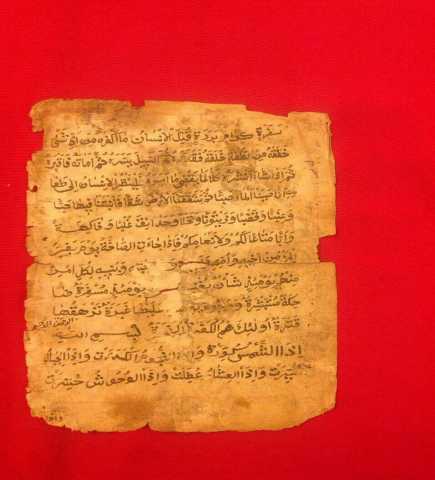 سفرة كرام بررة قتل الإنسان ما أكفره من أي شئ
خلقه من نطفة خلقه فقدره ثم السبيل يسره ثم أماته فأقبره
ثم إذا شاء أنشره كلا لما يقض ما أمره فلينظر الإنسان إلى طعا
مه أنا صببنا الماء صبا ثم شققنا الأرض شقا فأنبتنا فيها حبا
وعنبا وقضبا وزيتونا ونخلا وحدائق غلبا وفاكهة
وأبا متاعا لكم ولأنعامكم فإذا جاءت الصاخة يوم يفر
المرء من أخيه وأمه وبنيه لكل امرئ
منهم يومئذ شأن يغنيه يومئذ مسفرة ضا
حكة مستبشرة ووجوه عليها غبرة ترهقها
قترة أولئك هم الكفرة الفجرة بسم الله
الرحمن الرحيم
إذا الشمس كورت وإذا النجوم انكدرت وإذا الجبال
سيرت وإذا العشار عطلت وإذا الوحوش حشرت